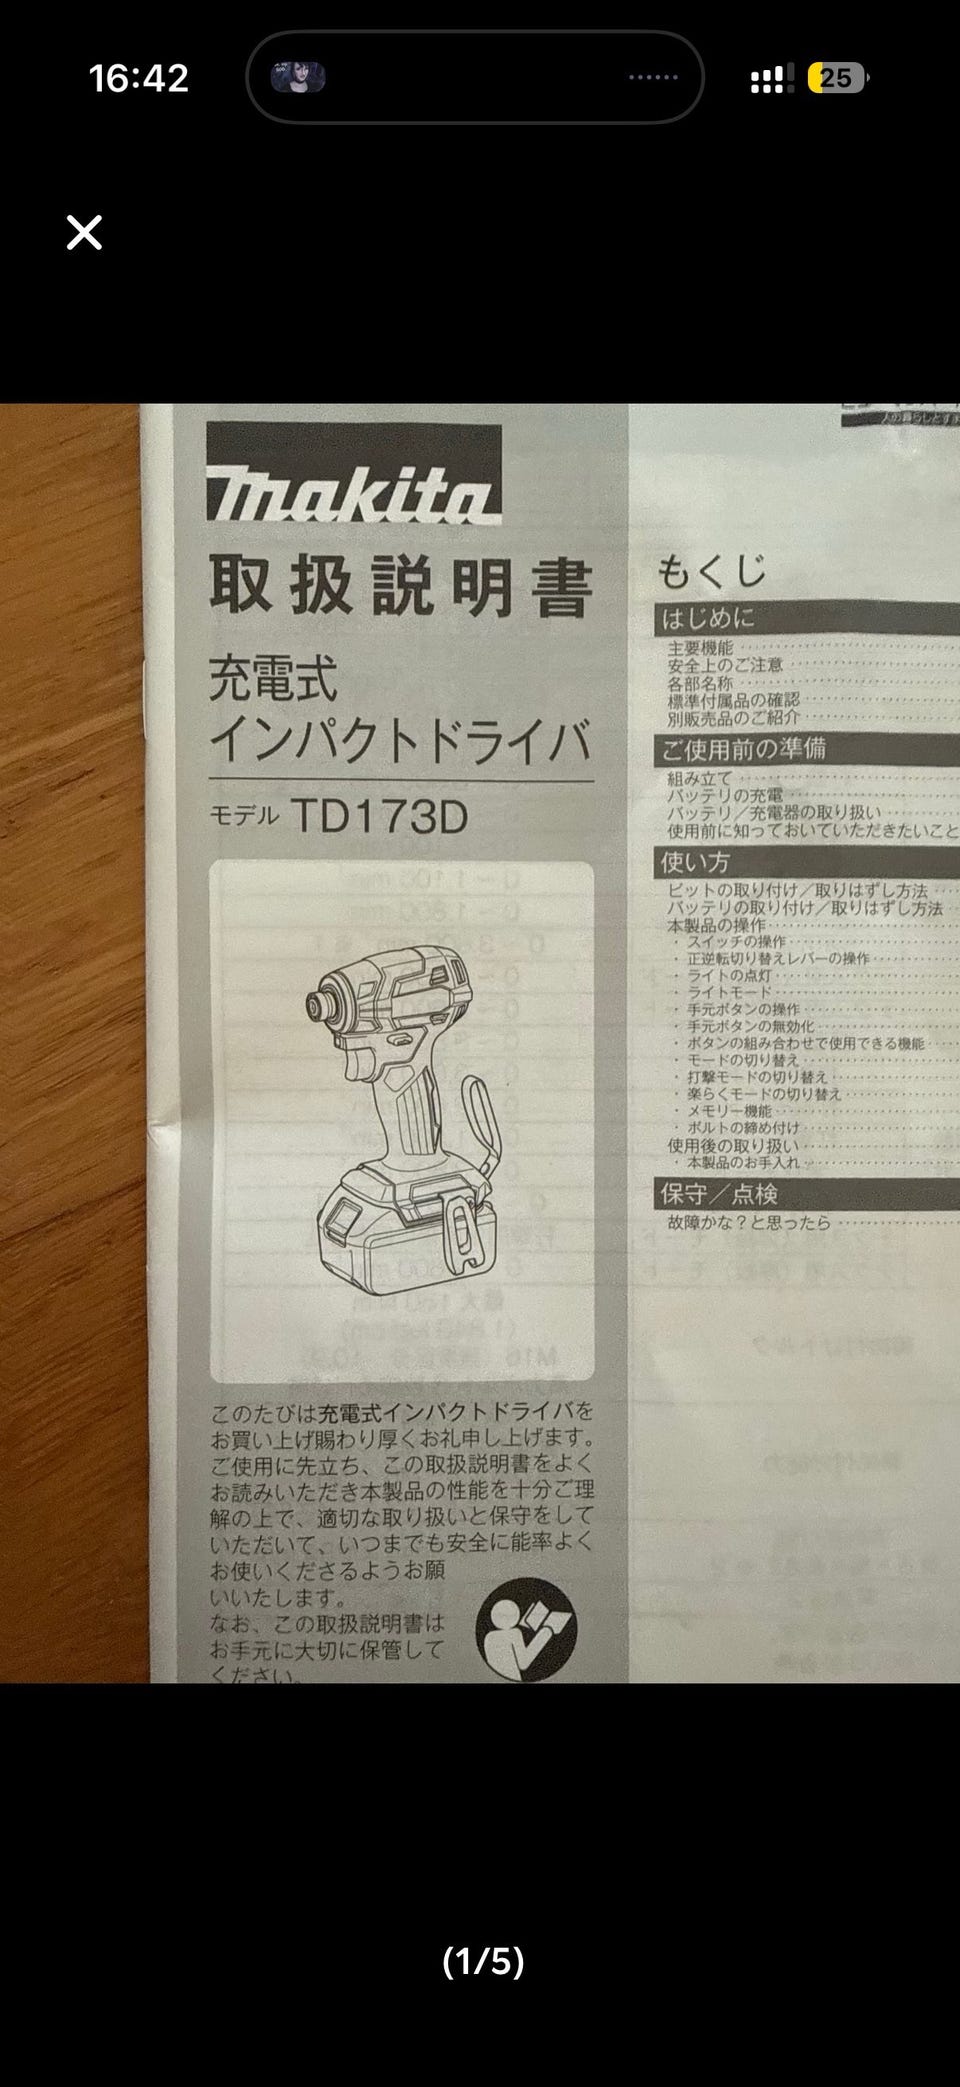 16:42
25
makita
取扱説明書
充電式
インパクトドライバ
モデル TD173D
このたびは充電式インパクトドライバを
お買い上げ賜わり厚くお礼申し上げます。
ご使用に先立ち、この取扱説明書をよく
お読みいただき本製品の性能を十分ご理
解の上で、適切な取り扱いと保守をして
いただいて、いつまでも安全に能率よく
お使いくださるようお願
いいたします。
なお、この取扱説明書は
お手元に大切に保管して
ください。
もくじ
はじめに
主要機能
安全上のご注意
各部名称
標準付属品の確認
別販売品のご紹介
ご使用前の準備
組み立て
バッテリの充電
バッテリ／充電器の取り扱い
使用前に知っておいていただきたいこと
使い方
ビットの取り付け／取りはずし方法
バッテリの取り付け／取りはずし方法
本製品の操作
・スイッチの操作
・正逆転切り替えレバーの操作
・ライトの点灯
・ライトモード
・手元ボタンの操作
・手元ボタンの無効化
・ボタンの組み合わせで使用できる機能
・モードの切り替え
・打撃モードの切り替え
・楽らくモードの切り替え
・メモリー機能
・ボルトの締め付け
使用後の取り扱い
・本製品のお手入れ
保守／点検
故障かな？と思ったら
(1/5)